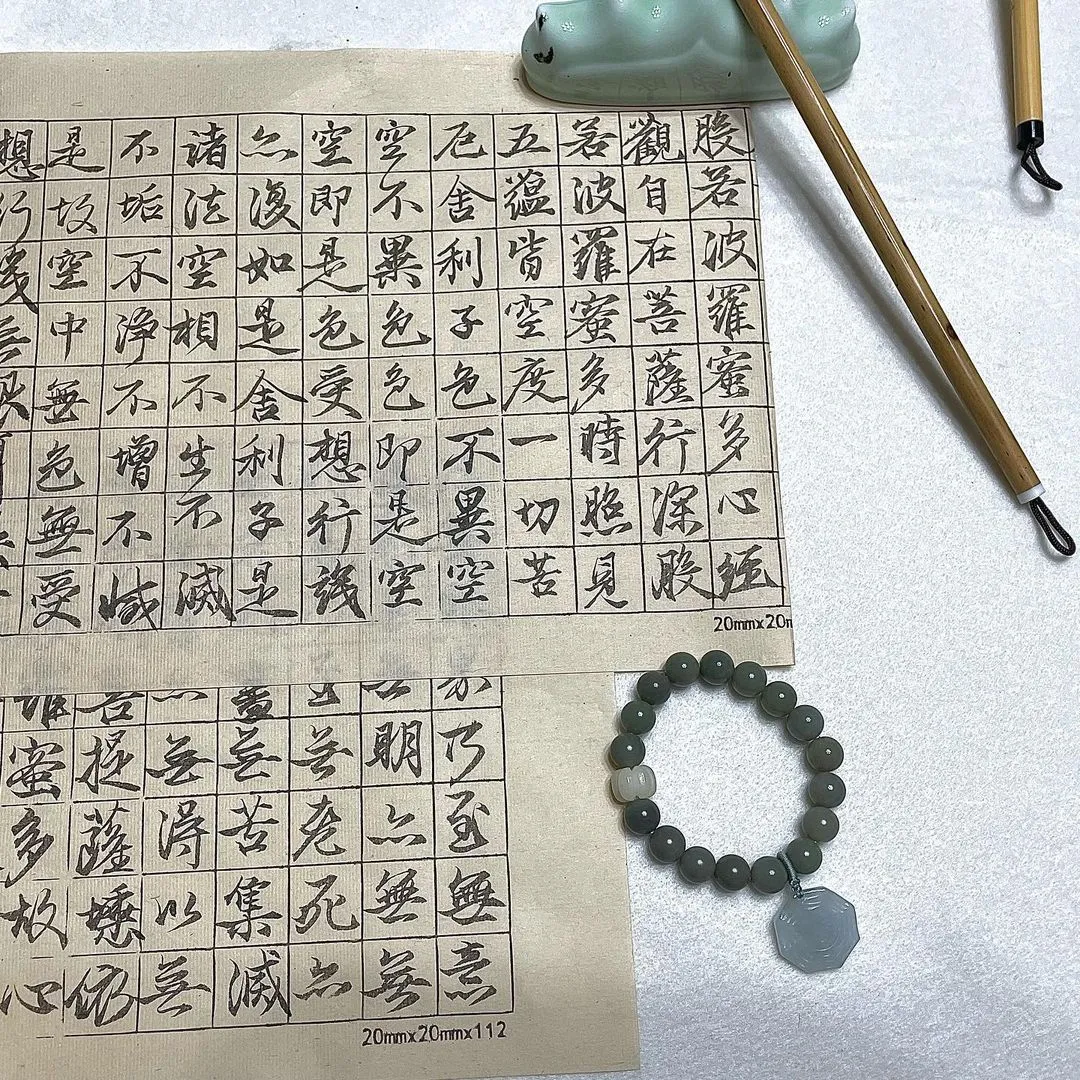 般若波羅蜜多心經
觀自在菩薩行深般
若波羅蜜多時照見
五蘊皆空度一切苦
厄舍利子色不異空
空不異色色即是空
空即是色受想行識
亦復如是舍利子是
諸法空相不生不滅
不垢不淨不增不減
是故空中無色無受
想行識無眼
20mmx20m
乃至無意
明亦無無
無老死亦
無苦集滅
無得以無
提薩埵依
蜜多故心
20mmx20mmx112